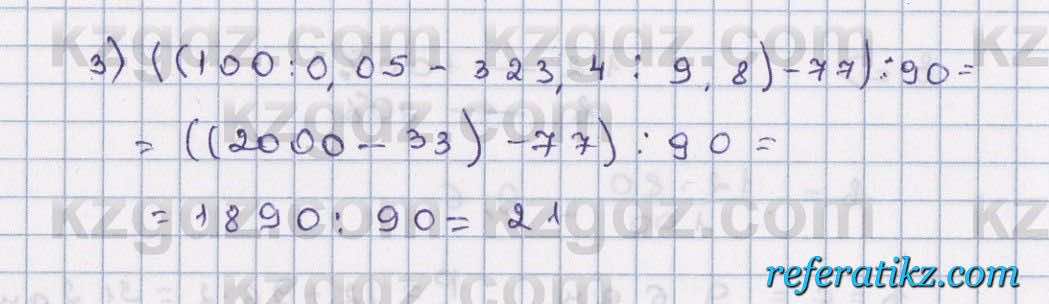 kzgdz.com kzgdz.com kz
3) ((100:0,05 - 323,4 : 9,8) - 77) : 90 =
kzgdz.com kzgdz.com
= ((2000 - 33) - 77) : 90 =
= 1890 : 90 = 21
kzgdz.com kzgdz.com kz
referatikz.com